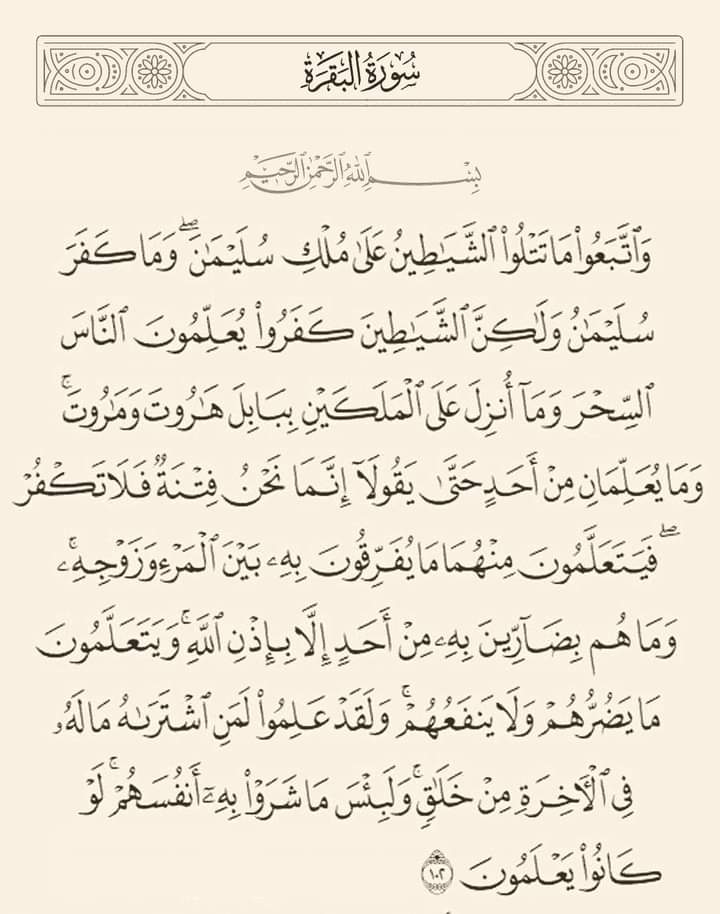 سُورَةُ البَقَرَةِ
بِسْمِ ٱللَّهِ ٱلرَّحْمَٰنِ ٱلرَّحِيمِ
وَٱتَّبَعُوا۟ مَا تَتْلُوا۟ ٱلشَّيَـٰطِينُ عَلَىٰ مُلْكِ سُلَيْمَـٰنَ ۖ وَمَا كَفَرَ
سُلَيْمَـٰنُ وَلَـٰكِنَّ ٱلشَّيَـٰطِينَ كَفَرُوا۟ يُعَلِّمُونَ ٱلنَّاسَ
ٱلسِّحْرَ وَمَآ أُنزِلَ عَلَى ٱلْمَلَكَيْنِ بِبَابِلَ هَـٰرُوتَ وَمَـٰرُوتَ ۚ
وَمَا يُعَلِّمَانِ مِنْ أَحَدٍ حَتَّىٰ يَقُولَآ إِنَّمَا نَحْنُ فِتْنَةٌ فَلَا تَكْفُرْ
ۖ فَيَتَعَلَّمُونَ مِنْهُمَا مَا يُفَرِّقُونَ بِهِۦ بَيْنَ ٱلْمَرْءِ وَزَوْجِهِۦ ۚ
وَمَا هُم بِضَآرِّينَ بِهِۦ مِنْ أَحَدٍ إِلَّا بِإِذْنِ ٱللَّهِ ۚ وَيَتَعَلَّمُونَ
مَا يَضُرُّهُمْ وَلَا يَنفَعُهُمْ ۚ وَلَقَدْ عَلِمُوا۟ لَمَنِ ٱشْتَرَىٰهُ مَا لَهُۥ
فِى ٱلْـَٔاخِرَةِ مِنْ خَلَـٰقٍ ۚ وَلَبِئْسَ مَا شَرَوْا۟ بِهِۦٓ أَنفُسَهُمْ ۚ لَوْ
كَانُوا۟ يَعْلَمُونَ ١٠٢